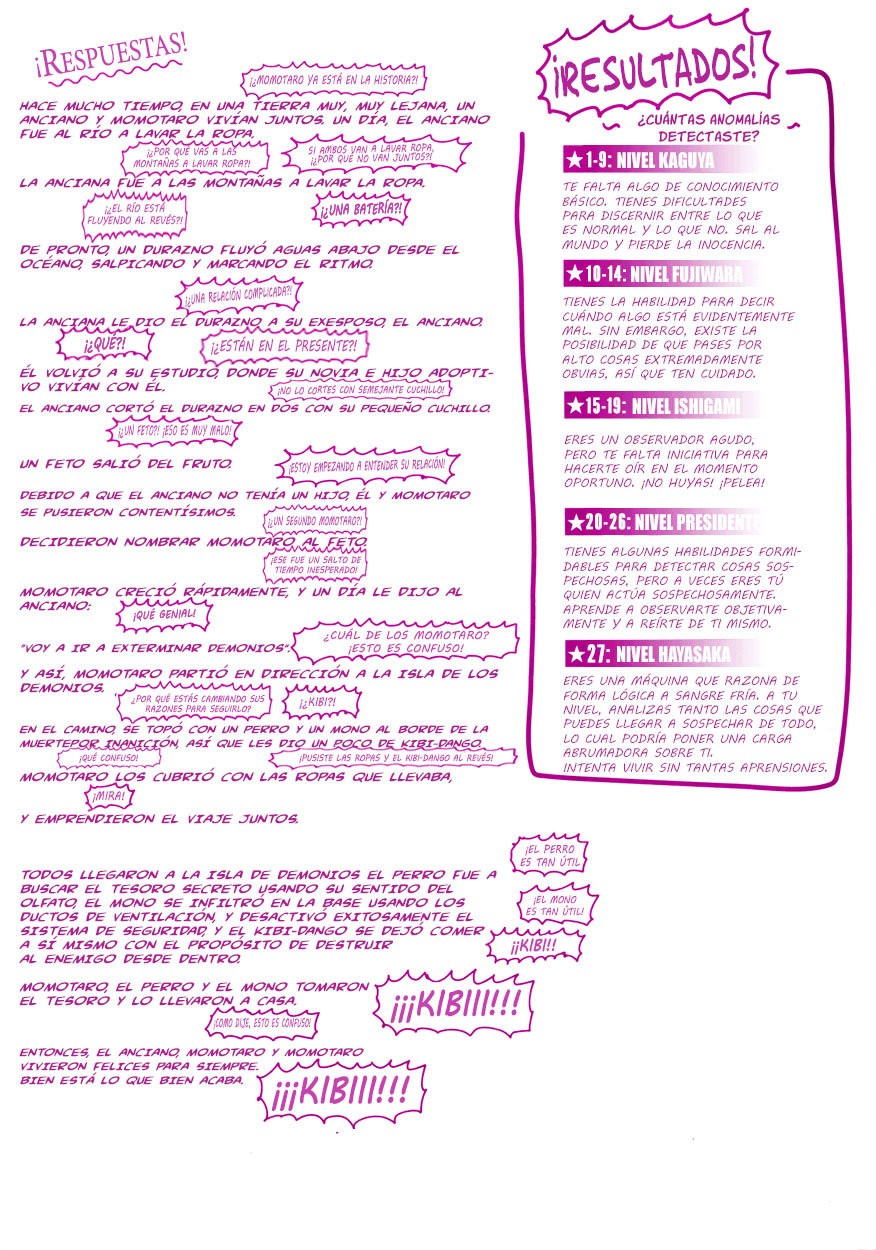 ¡RESPUESTAS!
¡¿MOMOTARO YA ESTÁ EN LA HISTORIA?!
HACE MUCHO TIEMPO, EN UNA TIERRA MUY, MUY LEJANA, UN
ANCIANO Y MOMOTARO VIVÍAN JUNTOS. UN DÍA, EL ANCIANO
FUE AL RÍO A LAVAR LA ROPA.
¡¿POR QUÉ VAS A LAS
MONTAÑAS A LAVAR ROPA?!
SI AMBOS VAN A LAVAR ROPA,
¡¿POR QUE NO VAN JUNTOS?!
LA ANCIANA FUE A LAS MONTAÑAS A LAVAR LA ROPA.
¡¿EL RÍO ESTÁ
FLUYENDO AL REVÉS?!
¡¿UNA BATERÍA?!
DE PRONTO, UN DURAZNO FLUYÓ AGUAS ABAJO DESDE EL
OCÉANO, SALPICANDO Y MARCANDO EL RITMO.
¡¿UNA RELACIÓN COMPLICADA?!
LA ANCIANA LE DIO EL DURAZNO A SU EXESPOSO, EL ANCIANO.
¡¿QUÉ?!
¡¿ESTÁN EN EL PRESENTE?!
ÉL VOLVIÓ A SU ESTUDIO, DONDE SU NOVIA E HIJO ADOPTI-
VO VIVÍAN CON ÉL.
¡NO LO CORTES CON SEMEJANTE CUCHILLO!
EL ANCIANO CORTÓ EL DURAZNO EN DOS CON SU PEQUEÑO CUCHILLO.
¡¿UN FETO?! ¡ESO ES MUY MALO!
UN FETO SALIÓ DEL FRUTO.
¡ESTOY EMPEZANDO A ENTENDER SU RELACIÓN!
DEBIDO A QUE EL ANCIANO NO TENÍA UN HIJO, ÉL Y MOMOTARO
SE PUSIERON CONTENTÍSIMOS.
¡¿UN SEGUNDO MOMOTARO?!
DECIDIERON NOMBRAR MOMOTARO AL FETO.
¡ESE FUE UN SALTO DE
TIEMPO INESPERADO!
MOMOTARO CRECIÓ RÁPIDAMENTE, Y UN DÍA LE DIJO AL
ANCIANO:
¡QUÉ GENIAL!
"VOY A IR A EXTERMINAR DEMONIOS".
¿CUÁL DE LOS MOMOTARO?
¡ESTO ES CONFUSO!
Y ASÍ, MOMOTARO PARTIÓ EN DIRECCIÓN A LA ISLA DE LOS
DEMONIOS.
¿POR QUÉ ESTÁS CAMBIANDO SUS
RAZONES PARA SEGUIRLO?
¡¿KIBI?!
EN EL CAMINO, SE TOPÓ CON UN PERRO Y UN MONO AL BORDE DE LA
MUERTEPOR INANICIÓN, ASÍ QUE LES DIO UN POCO DE KIBI-DANGO.
¡QUÉ CONFUSO!
¡PUSISTE LAS ROPAS Y EL KIBI-DANGO AL REVÉS!
MOMOTARO LOS CUBRIÓ CON LAS ROPAS QUE LLEVABA,
¡MIRA!
Y EMPRENDIERON EL VIAJE JUNTOS.
¡EL PERRO
ES TAN ÚTIL
TODOS LLEGARON A LA ISLA DE DEMONIOS EL PERRO FUE A
BUSCAR EL TESORO SECRETO USANDO SU SENTIDO DEL
OLFATO, EL MONO SE INFILTRÓ EN LA BASE USANDO LOS
DUCTOS DE VENTILACIÓN, Y DESACTIVÓ EXITOSAMENTE EL
SISTEMA DE SEGURIDAD, Y EL KIBI-DANGO SE DEJÓ COMER
A SÍ MISMO CON EL PROPÓSITO DE DESTRUIR
AL ENEMIGO DESDE DENTRO.
¡EL MONO
ES TAN ÚTIL!
¡¡KIBI!!
MOMOTARO, EL PERRO Y EL MONO TOMARON
EL TESORO Y LO LLEVARON A CASA.
¡¡¡KIBIII!!!
¡COMO DIJE, ESTO ES CONFUSO!
ENTONCES, EL ANCIANO, MOMOTARO Y MOMOTARO
VIVIERON FELICES PARA SIEMPRE.
BIEN ESTÁ LO QUE BIEN ACABA.
¡¡¡KIBIII!!!
¡RESULTADOS!
~ ¿CUÁNTAS ANOMALÍAS
DETECTASTE? ~
★1-9: NIVEL KAGUYA
TE FALTA ALGO DE CONOCIMIENTO
BÁSICO. TIENES DIFICULTADES
PARA DISCERNIR ENTRE LO QUE
ES NORMAL Y LO QUE NO. SAL AL
MUNDO Y PIERDE LA INOCENCIA.
★10-14: NIVEL FUJIWARA
TIENES LA HABILIDAD PARA DECIR
CUÁNDO ALGO ESTÁ EVIDENTEMENTE
MAL. SIN EMBARGO, EXISTE LA
POSIBILIDAD DE QUE PASES POR
ALTO COSAS EXTREMADAMENTE
OBVIAS, ASÍ QUE TEN CUIDADO.
★15-19: NIVEL ISHIGAMI
ERES UN OBSERVADOR AGUDO,
PERO TE FALTA INICIATIVA PARA
HACERTE OÍR EN EL MOMENTO
OPORTUNO. ¡NO HUYAS! ¡PELEA!
★20-26: NIVEL PRESIDENTE
TIENES ALGUNAS HABILIDADES FORMI-
DABLES PARA DETECTAR COSAS SOS-
PECHOSAS, PERO A VECES ERES TÚ
QUIEN ACTÚA SOSPECHOSAMENTE.
APRENDE A OBSERVARTE OBJETIVA-
MENTE Y A REÍRTE DE TI MISMO.
★27: NIVEL HAYASAKA
ERES UNA MÁQUINA QUE RAZONA DE
FORMA LÓGICA A SANGRE FRÍA. A TU
NIVEL, ANALIZAS TANTO LAS COSAS QUE
PUEDES LLEGAR A SOSPECHAR DE TODO,
LO CUAL PODRÍA PONER UNA CARGA
ABRUMADORA SOBRE TI.
INTENTA VIVIR SIN TANTAS APRENSIONES.